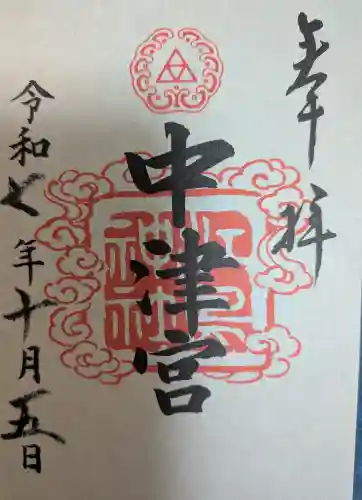 奉拝
中津宮
令和七年十月五日